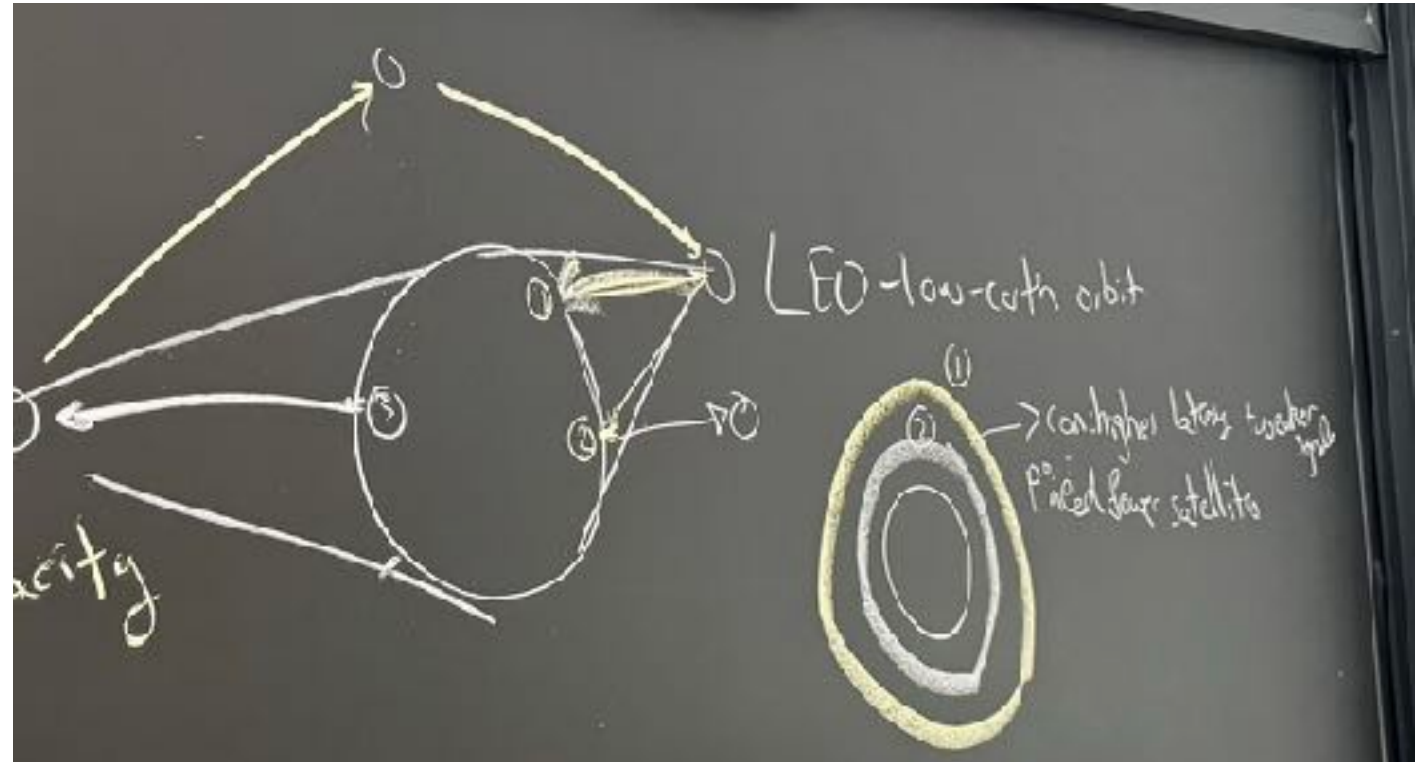 LEO-low-earth orbit
①
② → con: higher latency + weaker signal
pro: need fewer satellites
①
③
②
acity